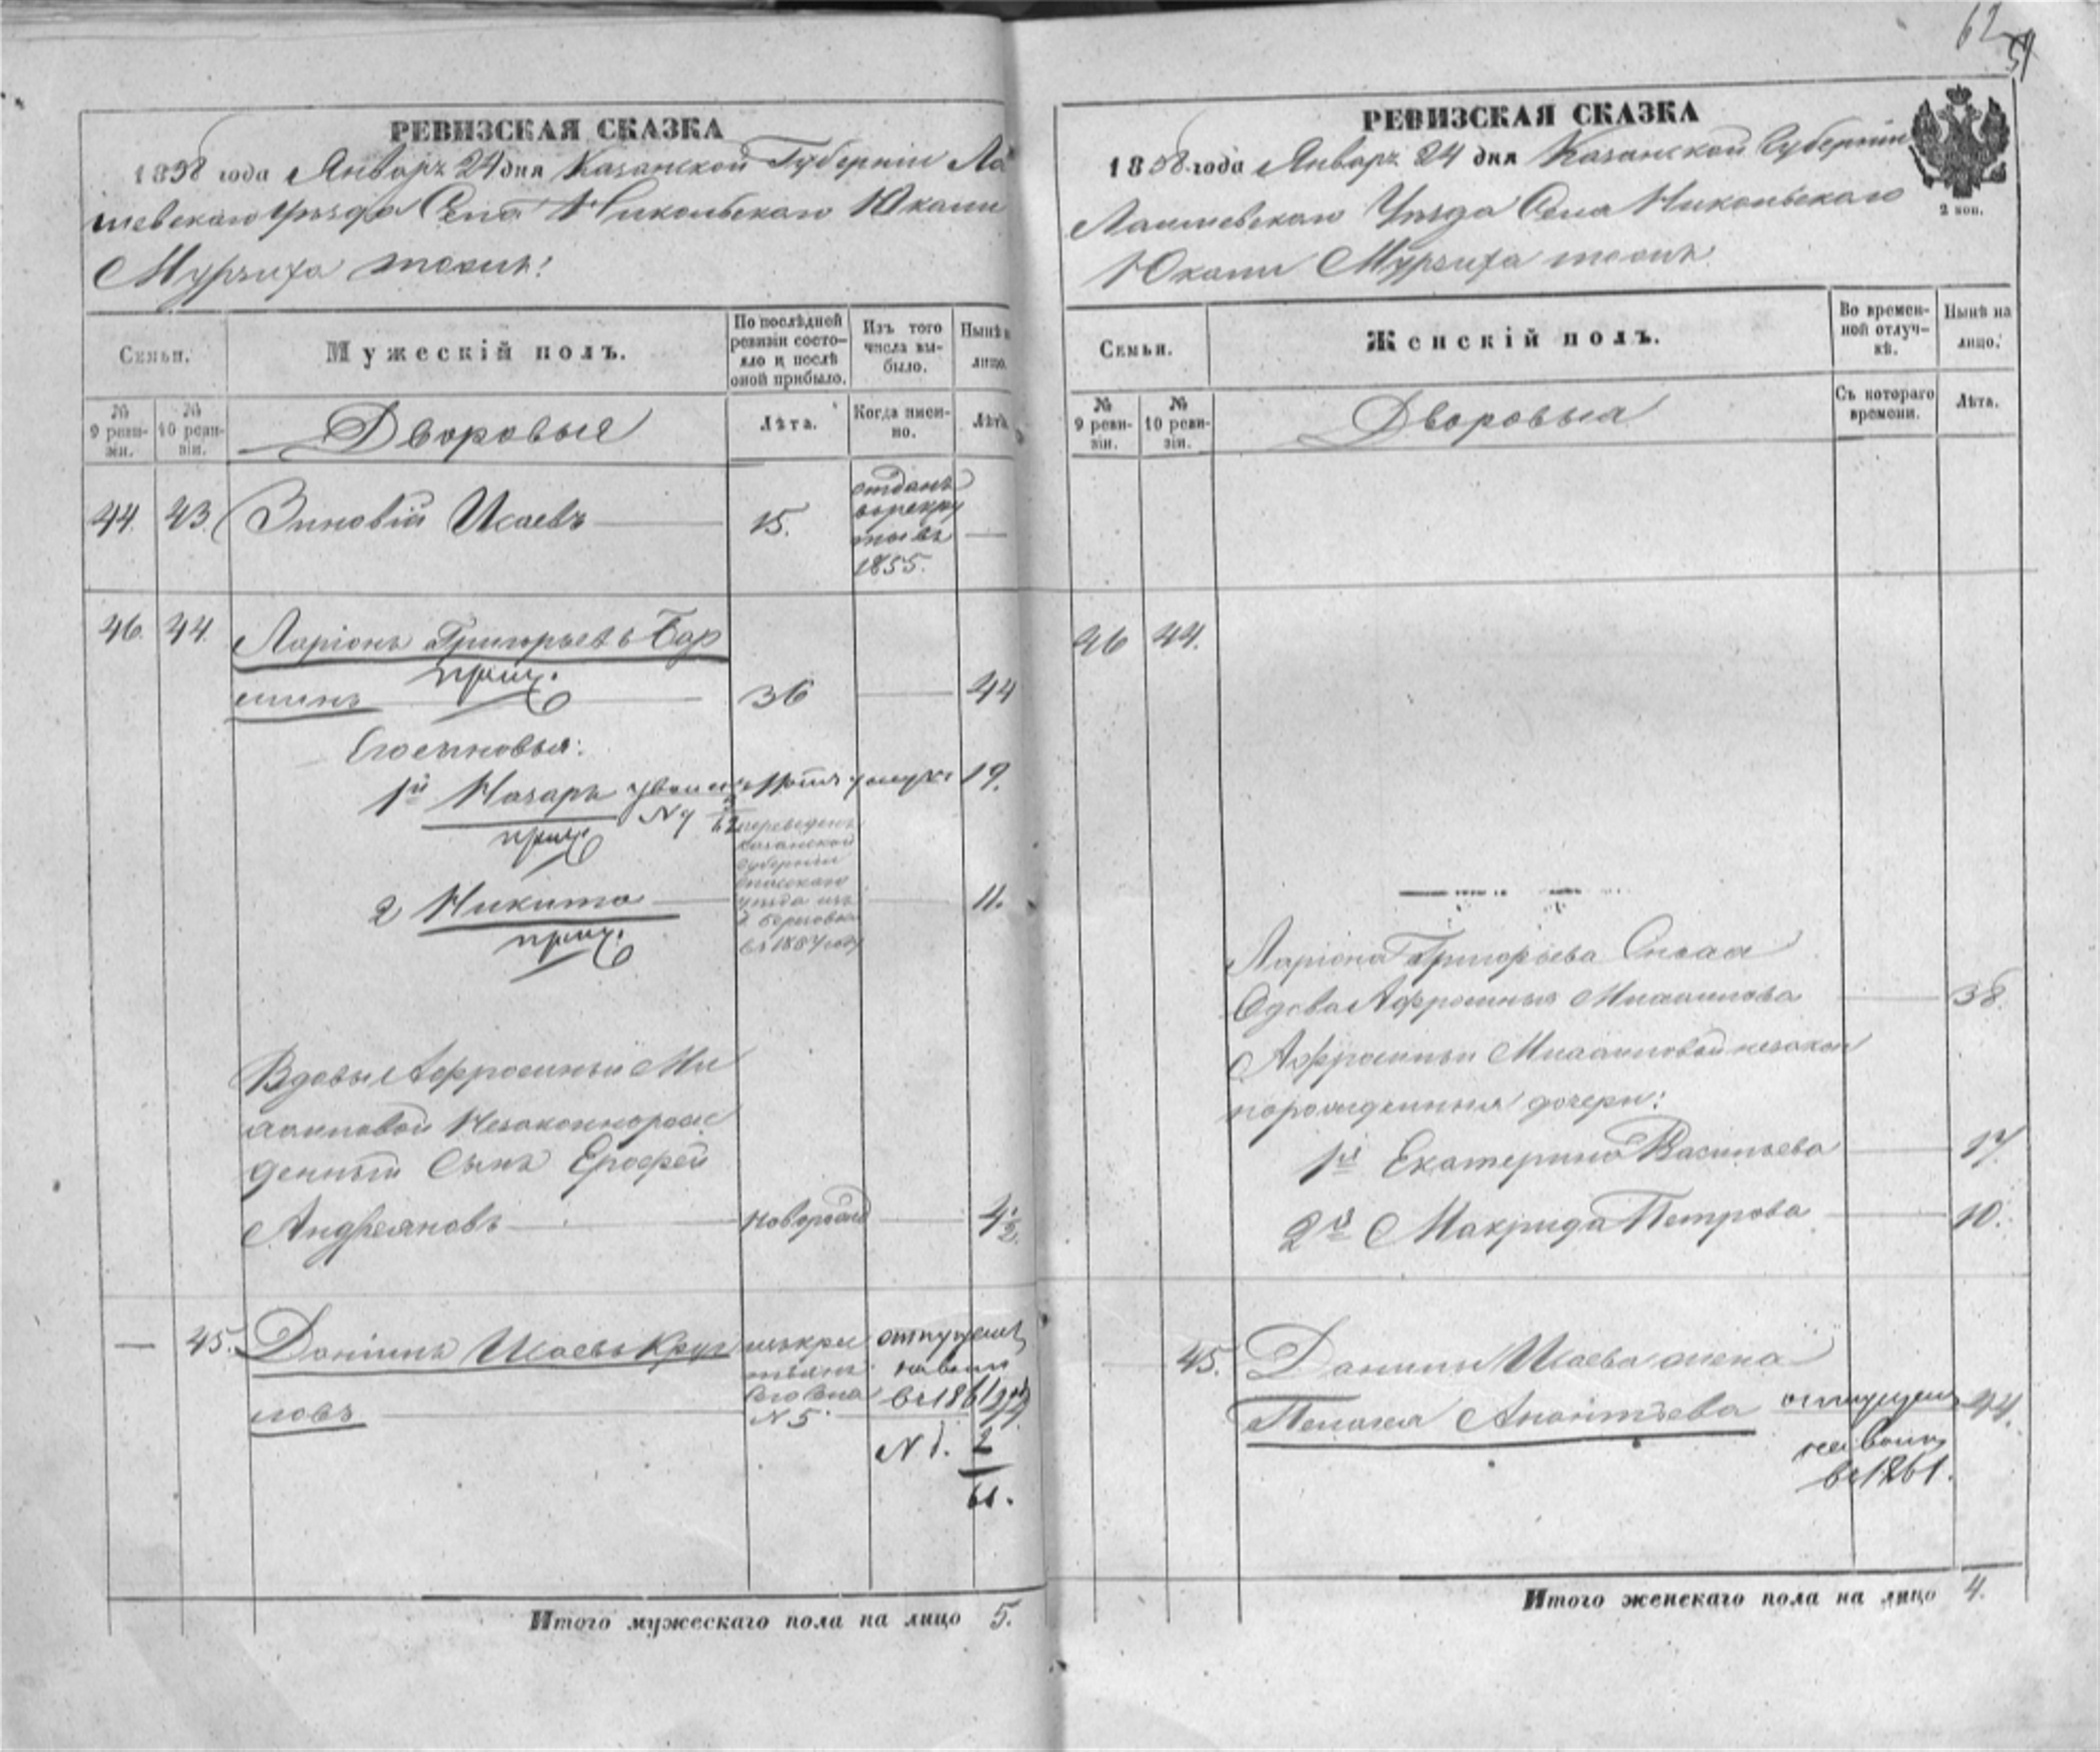 62
РЕВИЗСКАЯ СКАЗКА
1858 года Январ 24 дня Казанской Губерніи Ла
шевскаго Уѣзда Села Никольскаго Юкали
Мурзиха тожъ:
Семьи.
Мужескій полъ.
По послѣдней ревизіи состояло и послѣ оной прибыло.
Изъ того числа выбыло.
Нынѣ н
лицо.
№ 9 ревизіи.
№ 10 ревизіи.
Дворовые
Лѣта.
Когда именно.
Лѣта
44. 43. Зиновій Исаевъ 15. отданъ
въ рекру
ты въ
1855.
46. 44. Ларіонъ Григорьевъ
36 44
Его сыновья:
1й Назаръ 19.
№
переведенъ
Казанской
Губерніи
Спасскаго
уѣзда изъ
2 Никита 11.
Вдовы Афросиньи Ми
Незаконнорож
денный Сынъ Ерофей
Андреяновъ новорожд 4 1/2.
— 45. Данiилъ Исаевъ Круг
ловъ
изъ крес
тьянъ
сего села
№ 5
отпущенъ
на волю
въ 1861
№ 2
61.
Итого мужескаго пола на лицо 5.
РЕВИЗСКАЯ СКАЗКА
1858 года Январ 24 дня Казанской Губерніи
Лаишевскаго Уѣзда Села Никольскаго
Юкали Мурзиха тожъ
2 коп.
Семьи.
Женскій полъ.
Во временной отлучкѣ.
Нынѣ на лицо.
№ 9 ревизіи.
№ 10 ревизіи.
Дворовыя
Съ котораго времени.
Лѣта.
46 44.
Ларіона Григорьева Сноха
Вдова Афросинья 38.
Афросиньи незакон
норожденныя дочери:
1я Екатерина Васильева 17.
2я Макрида Петрова 10.
45. Данилы Исаева жена
Пелагея отпущена 44.
на волю
въ 1861.
Итого женскаго пола на лицо 4.